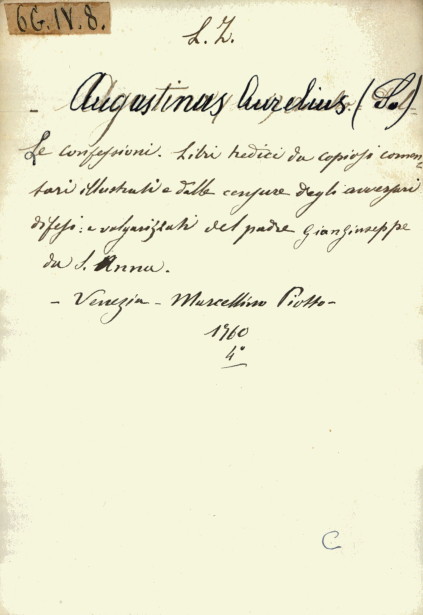 6G.IV.8.
L. Z.
- Augustinus Aurelius. (S.)
Le confessioni. Libri tredici da copiosi comen-
tari illustrati e dalle censure degli avversari
difesi: e volgarizzati del padre Giangiuseppe
da S. Anna.
- Venezia - Marcellino Piotto -
1760
4°
C